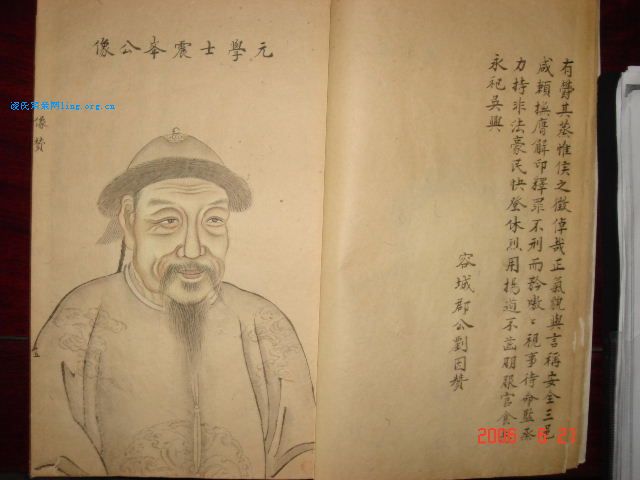 元學士震峯公像
凌氏宗亲网ling.org.cn
像贊
有聲其蒸惟侯之徵倬哉正氣說與言稱安全三邑
咸賴撫膺解印釋眾不刑而矜嗷〻視事待命監丞
力持非法豪民快登休烈用揚道不茁朋服官食
永祀吳興
容城郡公劉因贊
2006 6 21